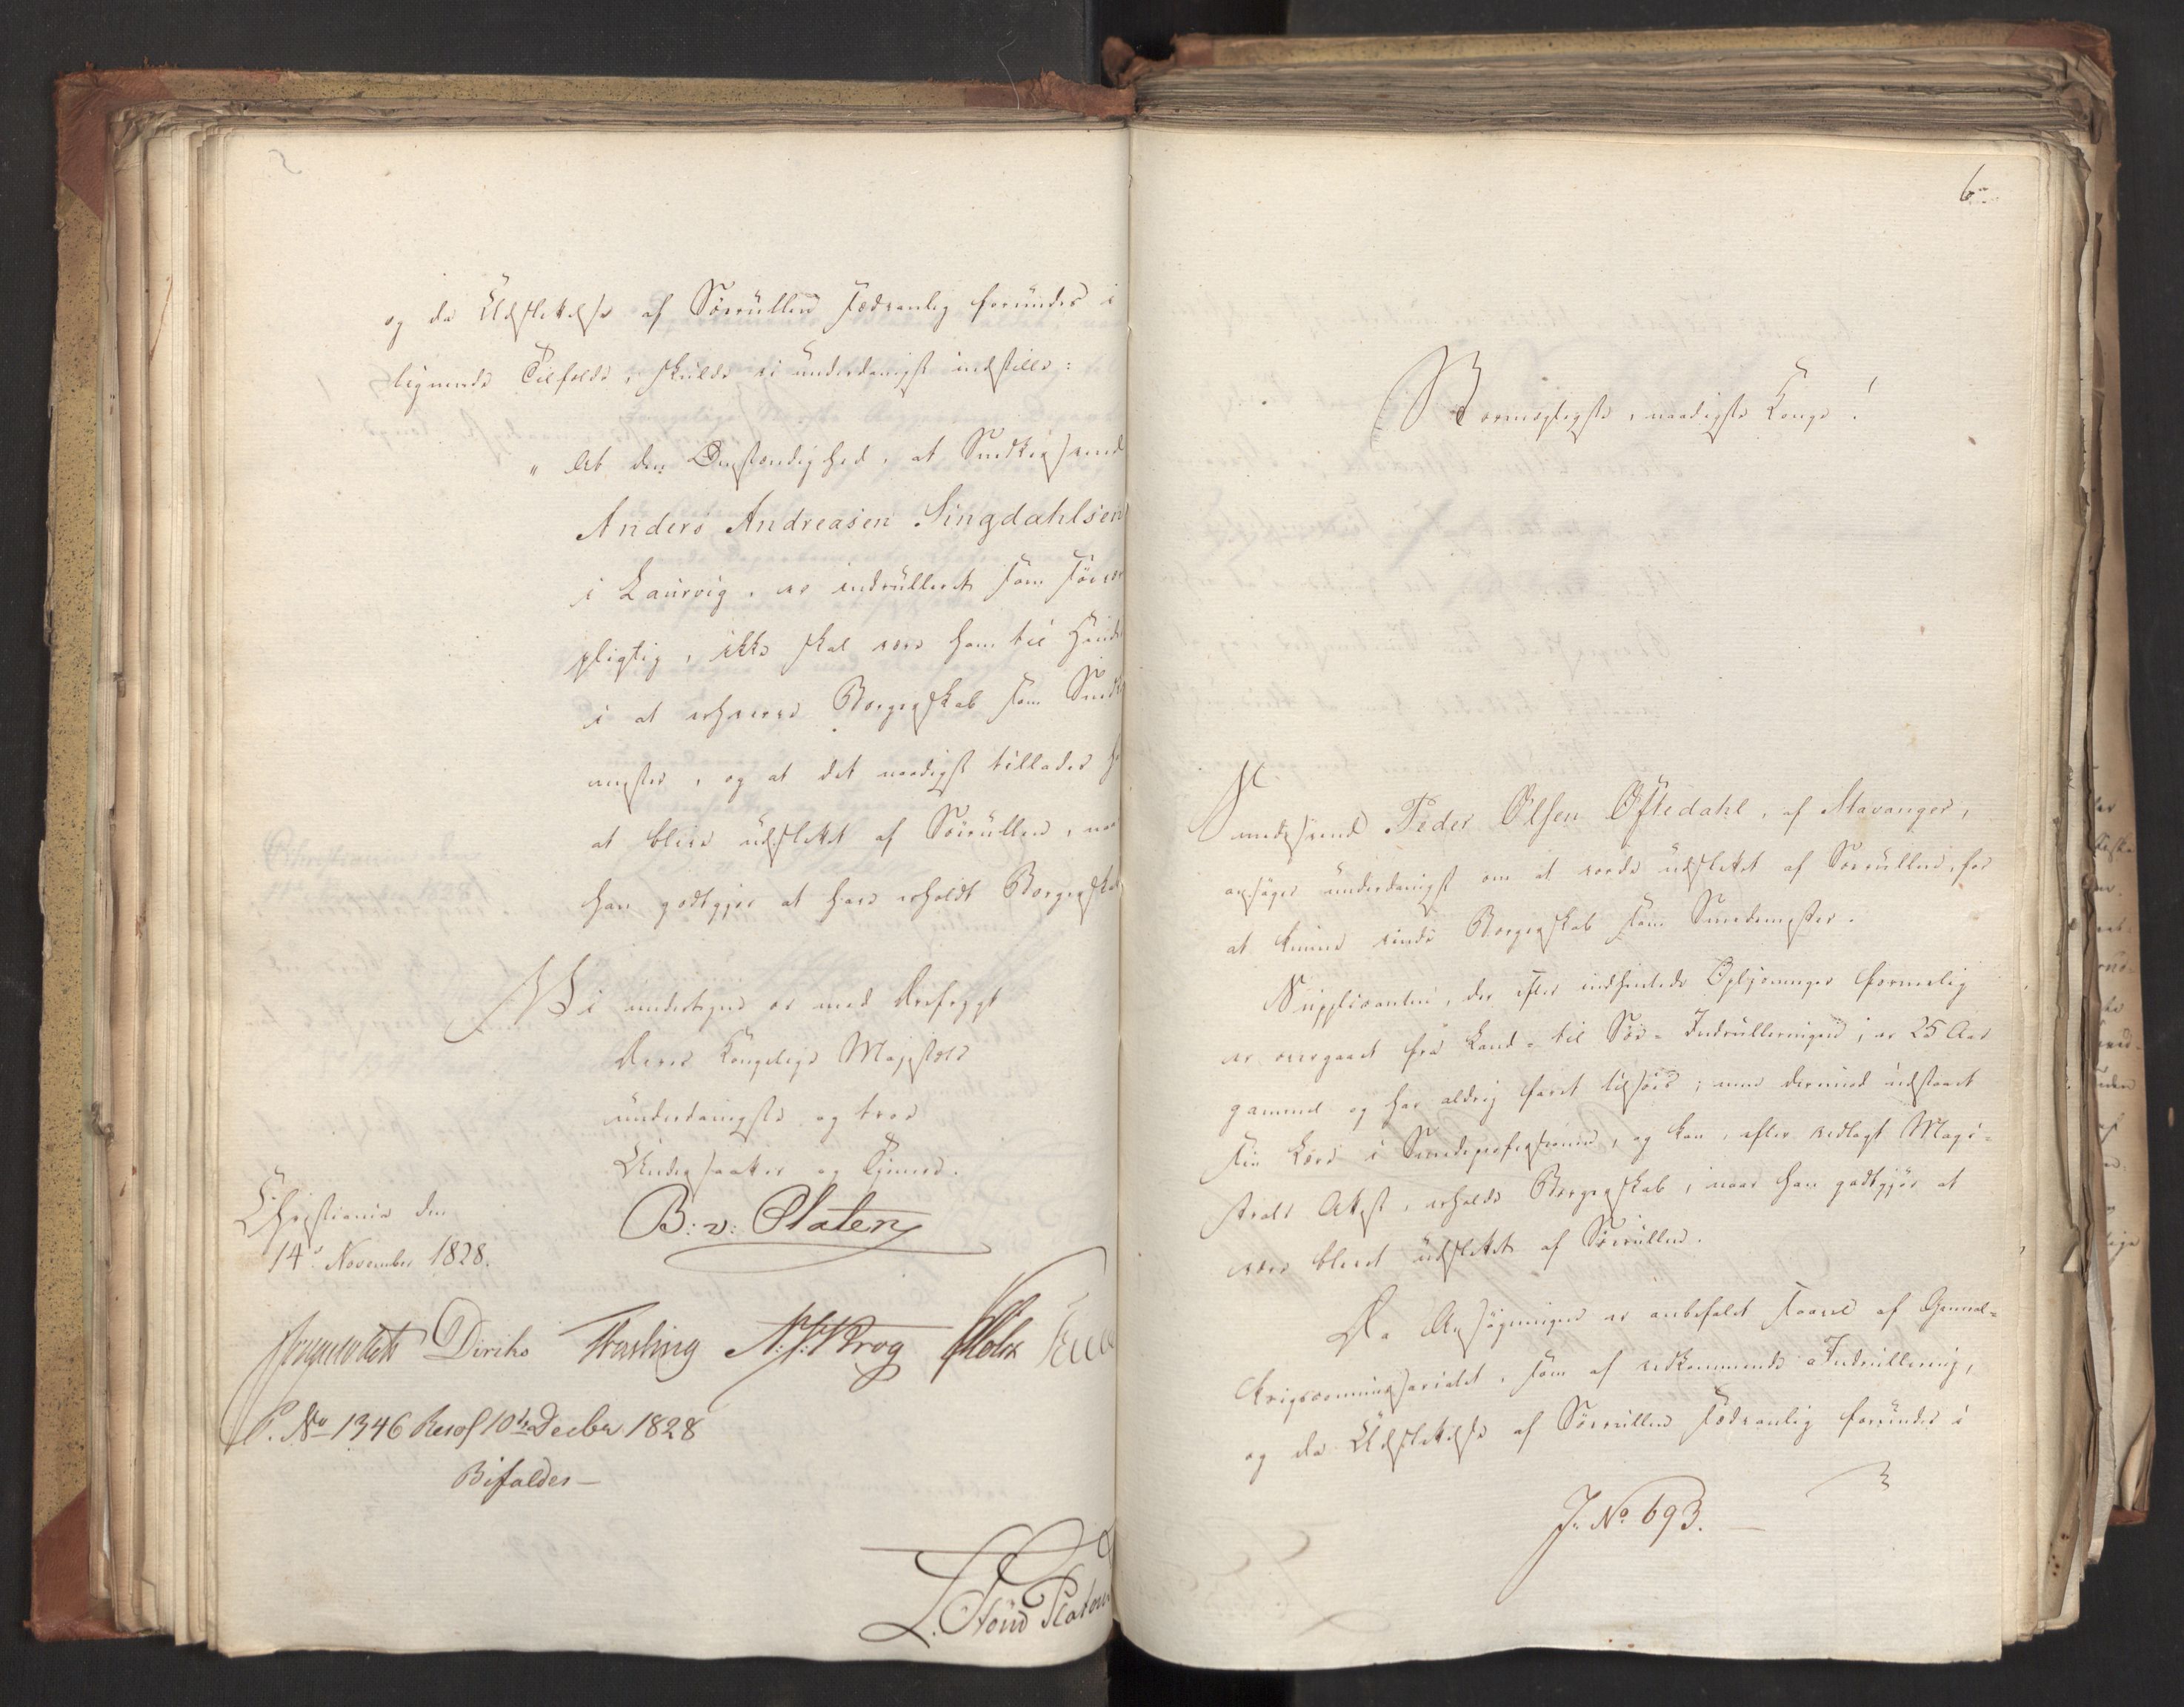 og da Udslettelse af Søerullen sædvanlig forundes i
lignende Tilfælde, skulde vi underdanigst indstille:
" At den Omstændighed, at Snedkersvend
Anders Andreasen Lingdahlsen
i Laurvig, er indrulleret som søevær
pligtig, ikke skal være ham til Hinder
i at erhverve Borgerskab som Snedker
mester, og at det naadigst tillades ham
at blive udslettet af Søerullen, naar
han godtgjør at have erholdt Borgerskab
Vi undertegne os med Ærefrygt
Deres Kongelige Majestæts
underdanigste og troe
Undersaatter og Tjenere.
Christiania den
14de November 1828.
B: v: Platen
Diriks Fasting N. J. Krog Holst
P. No 1346 Resol 10de Decbr 1828
Bifaldes—
L. Stoud Platou
6
Stormægtigste, naadigste Konge!
Smedesvend Peder Olsen Oftedahl, af Stavanger,
ansøger underdanigst om at vorde udslettet af Søerullen, for
at kunne vinde Borgerskab som Smedemester.
Supplicanten, der efter indhentede Oplysninger formelig
er overgaaet fra Land- til Søe-Indrulleringen, er 25 Aar
gammel og har aldrig faret tilsøes; men derimod udstaaet
sin Lære i Smedeprofessionen, og kan, efter vedlagt Magi-
strats Attest, erholde Borgerskab, naar han godtgjør at
være bleven udslettet af Søerullen.
Da Ansøgningen er anbefalet saavel af General-
krigscommissariatet, som af vedkommende Indrullering,
og da Udslettelse af Søerullen sædvanlig forundes i
J. No 693.